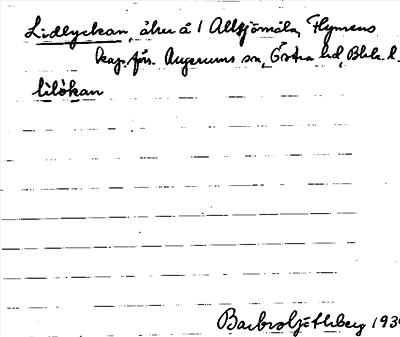 Lidlyckan, åker å 1 Alltjömåla, Flymens
kap. förs. Augerums sn, Östra hd, Blek. l.
lìlòkan
Barbro Ljöthberg 193